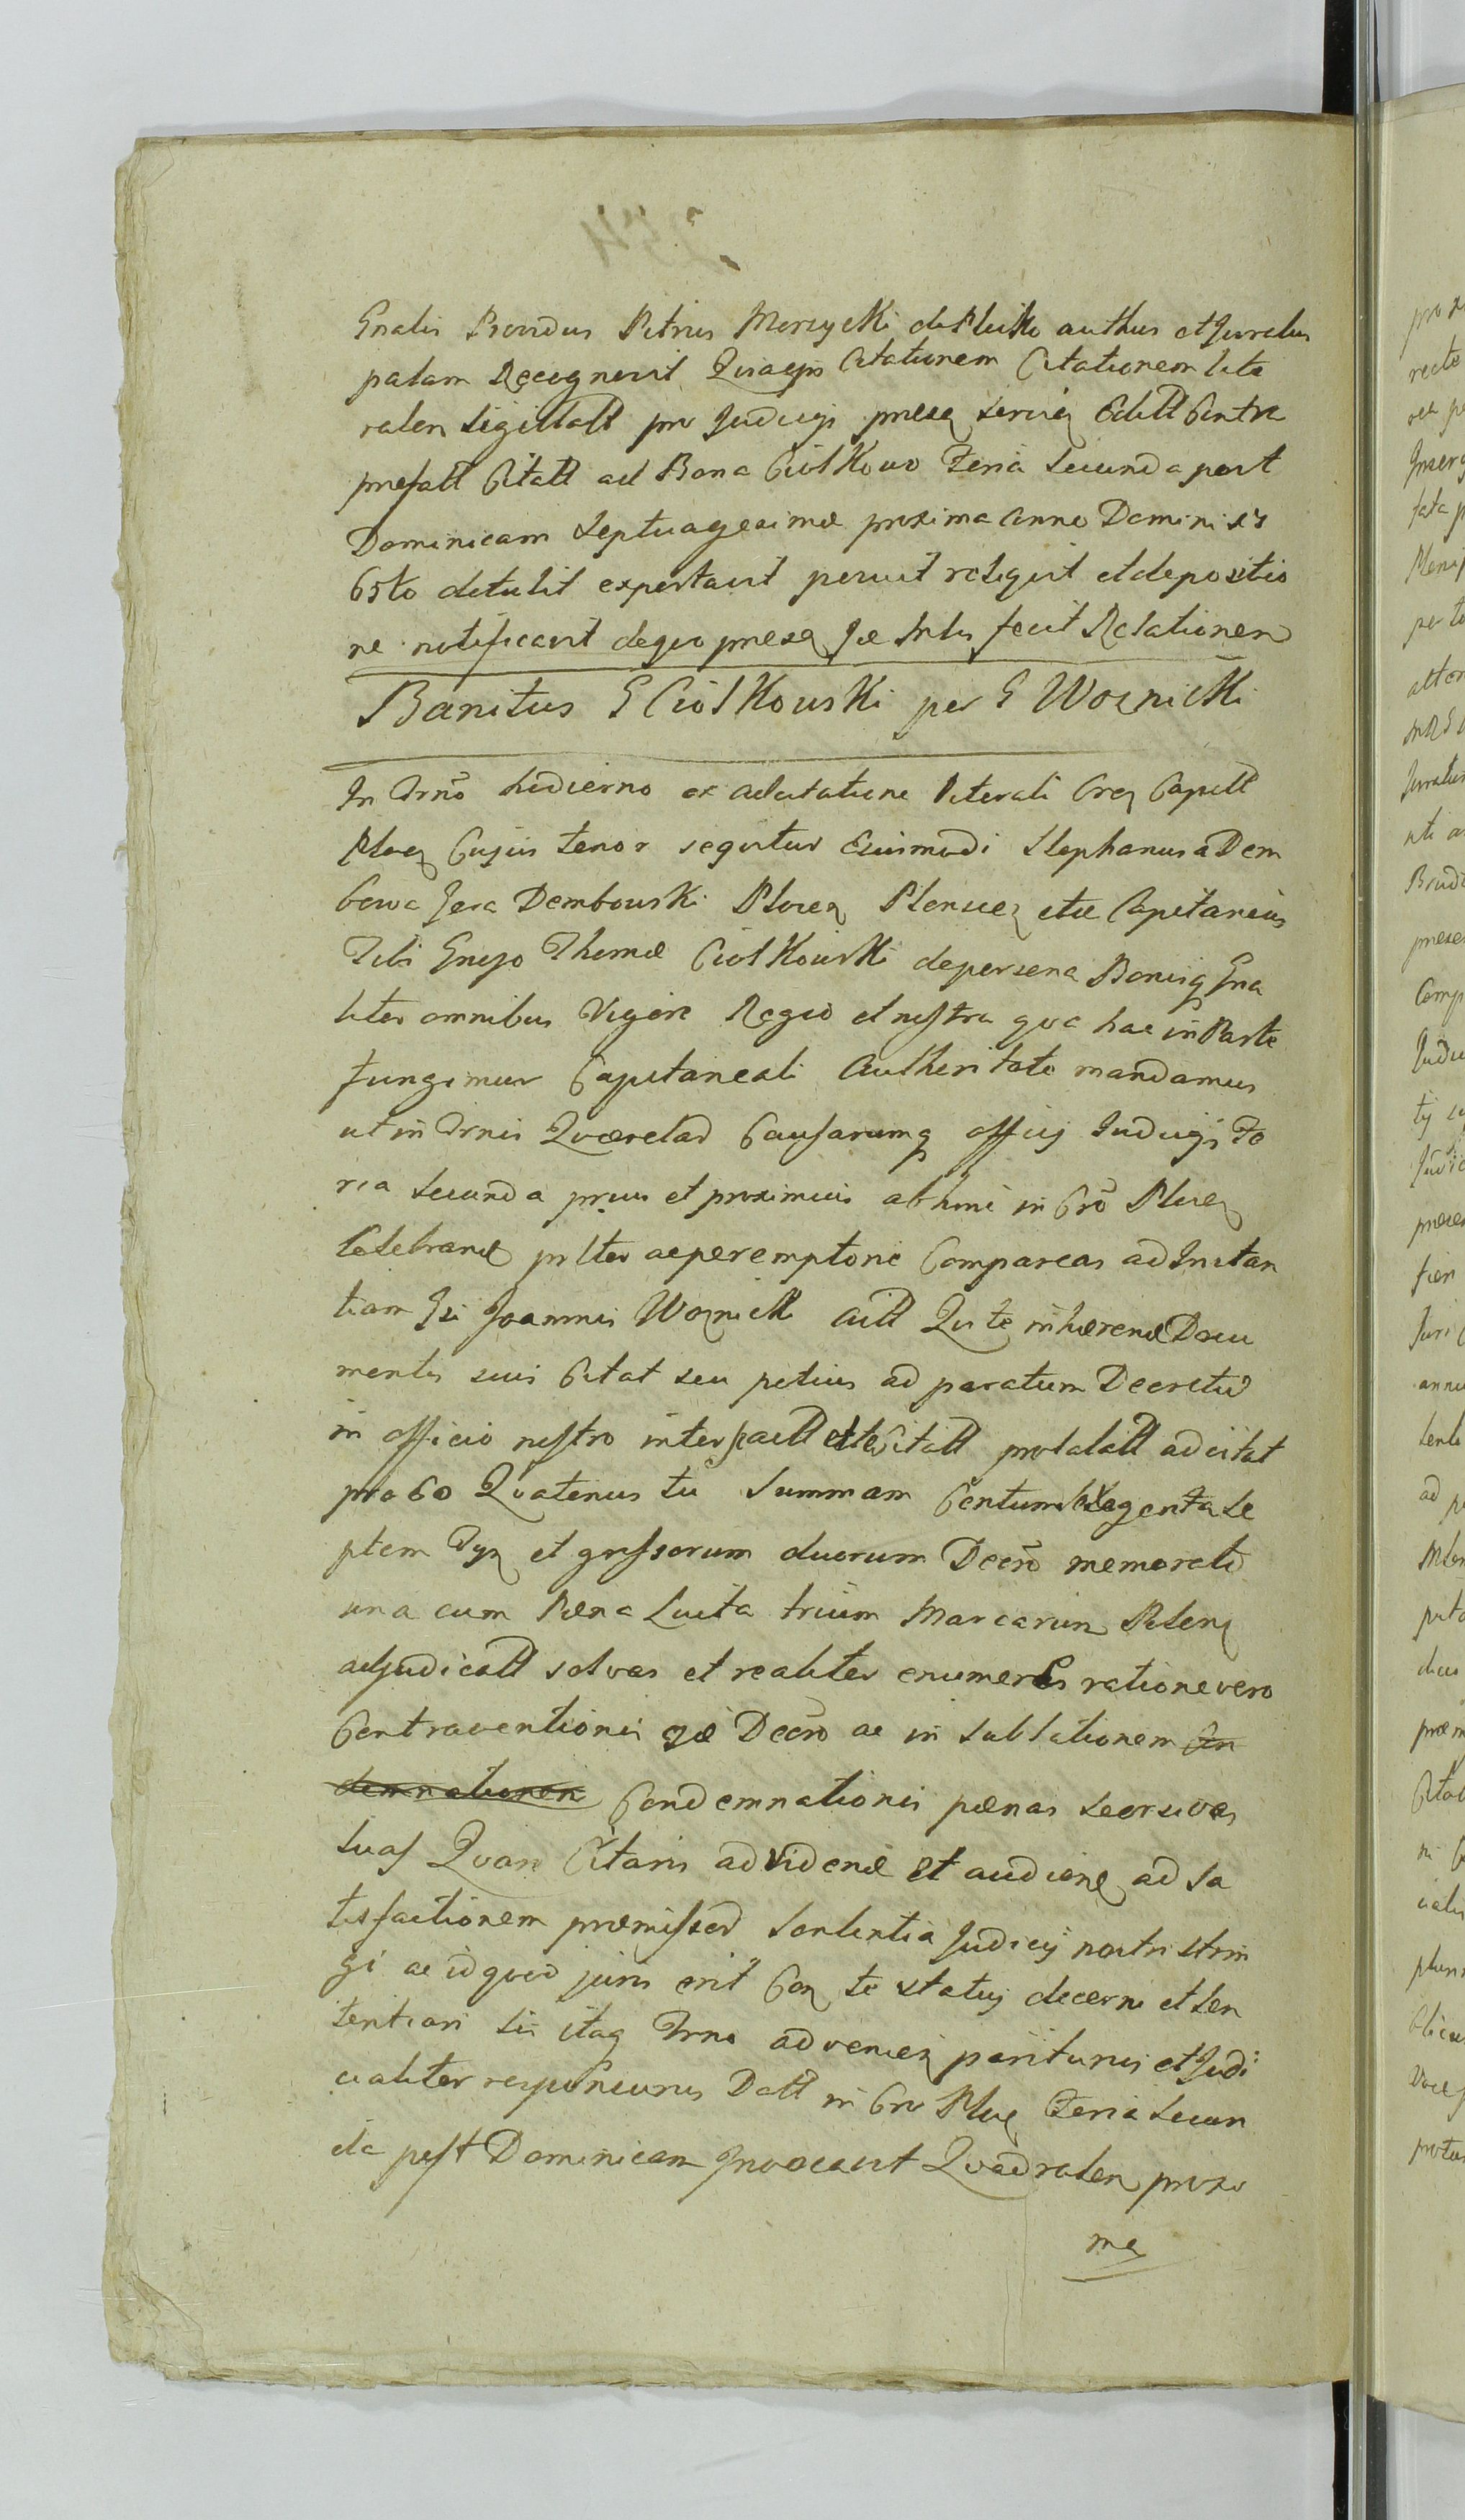 Gnalis Providus Petrus Merzycki de Plicko authus et Juratus
palam Recognovit Quia ejus Citationem Citationem lite
ralem sigillatt pro Judicijs prese servien Editt Contra
prefatt Citatt ad Bona Ciolkowo Feria Secunda post
Dominicam Septuagesimæ proxima Anno Domini
65to detulit exportavit posuit reliquit et depositio
ne notificavit de quo prese fecit Relationem
Banitus G Ciolkowski per G Woznicki
In Trno hodierno ex adcitatione literali Cren Capitt
Plocen Cujus tenor sequitur Ejusmodi Stephanus a Dem
bowa Gora Dembowski Plocen Plonscen etce Capitaneus
Tibi Gneso Thomæ Ciolkowski de persona Bonisq Gna
liter omnibus Vigore Regio et nostra qua hac in Parte
fungimur Capitaneali Authoritate mandamus
ut in Trnis Querelar Causarumq officij Judicijs Fe
ria Secunda prius et proximius abhinc in Cro Plocen
Celebrand prlter ac peremptorie Compareas ad Instan
tiam Gsi Joannis Woznicki Actt Qui te inhærend Docu
mentis suis Citat seu potius ad paratum Decretum
in officio nostro inter partt et te Citatt prolatatt adcitat
pro eo Quatenus tu Summam Centum sexaginta Se
ptem Tyn et grossorum duorum Decro memorato
una cum Pæna Luita trium Marcarum Polen
adjudicatt solvas et realiter enumeres ratione vero
Contraventionis ejæ Decro ac in sublationem Con
demnationem Condemnationis pœnas seorsivas
luas Quare Citaris ad vidend et audiend ad Sa
tisfactionem premissor Sententia Judicij nostri strin
gi ac id quod juris erit Con te statuj decerni et Sen
tentiari sis itaq Trno advenien pariturus et Judi
cialiter responsurus Datt in Cro Plocen Feria Secun
da post Dominicam Invocavit Quadralem proxi
ma